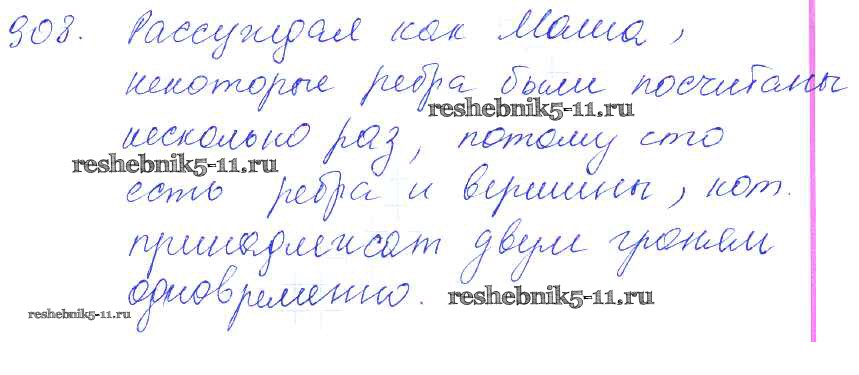 908. Рассуждая как Маша,
некоторые ребра были посчитаны
reshebnik5-11.ru
несколько раз, потому сто
reshebnik5-11.ru
есть ребра и вершины, кот.
принадлежат двум граням
одновременно.
reshebnik5-11.ru
reshebnik5-11.ru